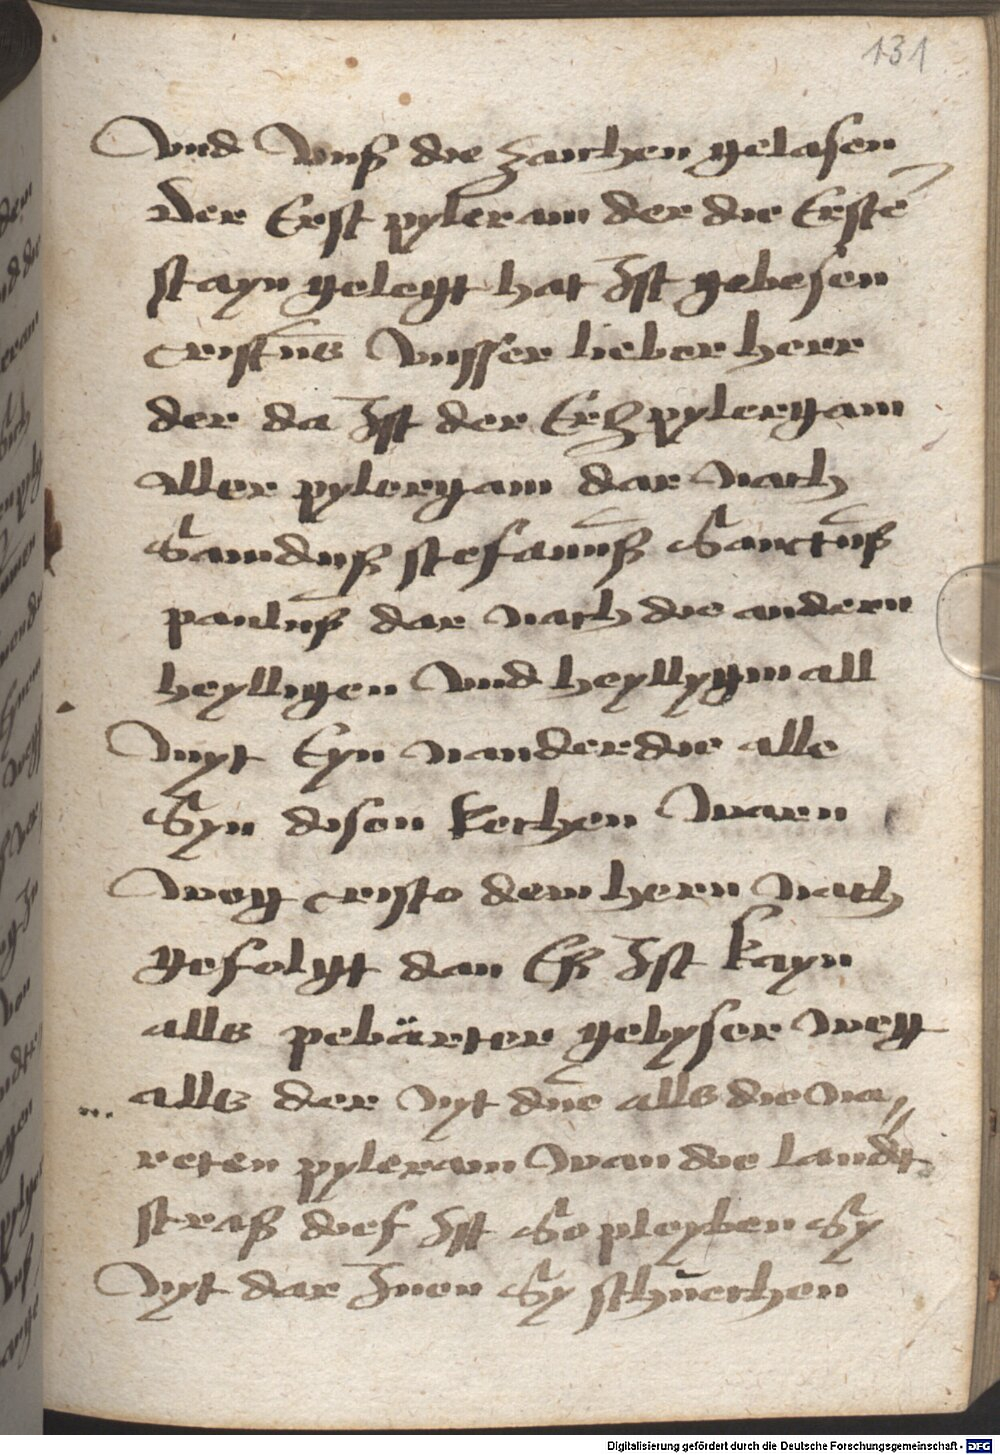 131
Vnd Vnß die zaichen gelasen
Der Erst pyleram der die Erste
stayn gelegt hat Ist gebesen
cristus Vnsser lieber herr
der da Ist der Ertz pylergam
aller pylergam dar nach
Sanduß stefanuß Sanctuß
pauluß dar nach die andern
heylligen Vnd heyllygin all
myt Eyn nander die alle
Syn disen kechen waren
weg cristo dem hern nach
gefolgt dan Eß Ist kayn
alls pebärter gebyser weg
alls der nyt die alls die na,,
reten pyleram wan die landt
straß dief Ist So pleyben Sy
nyt dar Inen Sy schuechen
Digitalisierung gefördert durch die Deutsche Forschungsgemeinschaft - DFG